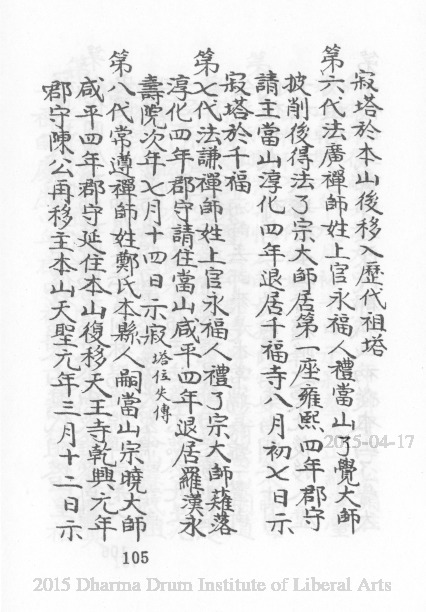 寂塔於本山後移入歷代祖塔
第六代法廣禪師姓上官永福人禮當山了覺大師
披削後得法了宗大師居第一座雍熙四年郡守
請主當山淳化四年退居千福寺八月初七日示
寂塔於千福
第七代法謙禪師姓上官永福人禮了宗大師薙落
淳化四年郡守請住當山咸平四年退居羅漢永
壽院次年七月十四日示寂塔位失傳
第八代常遵禪師姓鄭氏本縣人嗣當山宗曉大師
咸平四年郡守延住本山復移天王寺乾興元年
郡守陳公再移主本山天聖元年三月十二日示
105
2015-04-17
2015 Dharma Drum Institute of Liberal Arts